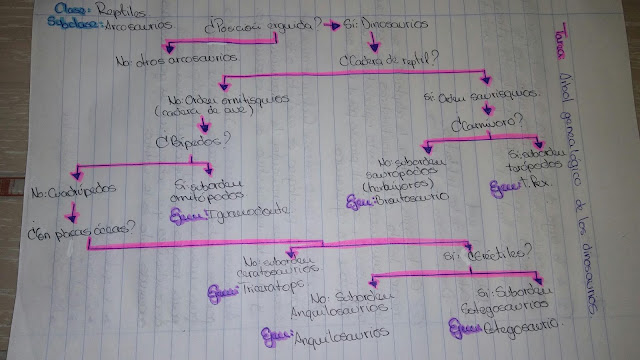 Clase: Reptiles
Subclase: Arcosaurios
¿Posición erguida?
Sí: Dinosaurios
No: otros arcosaurios.
¿Cadera de reptil?
No: Orden ornitisquios
(cadera de ave)
Sí: Orden saurisquios.
¿Bípedos?
¿Carnívoro?
No: Cuadrúpedos
Sí: suborden
ornitópodos
Ejem: Iguanodonte
No: suborden
saurópodos
(herbívoros)
Ejem: Brontosaurio
Sí: suborden
terópodos
Ejem: T. Rex.
¿Con placas óseas?
No: suborden
ceratosaurios
Ejem: Triceratops
Sí: ¿Eréctiles?
No: Suborden
Anquilosaurios
Ejem: Anquilosaurios
Sí: Suborden
Estegosaurios
Ejem: Estegosaurio.
Tarea: Árbol genealógico de los dinosaurios.